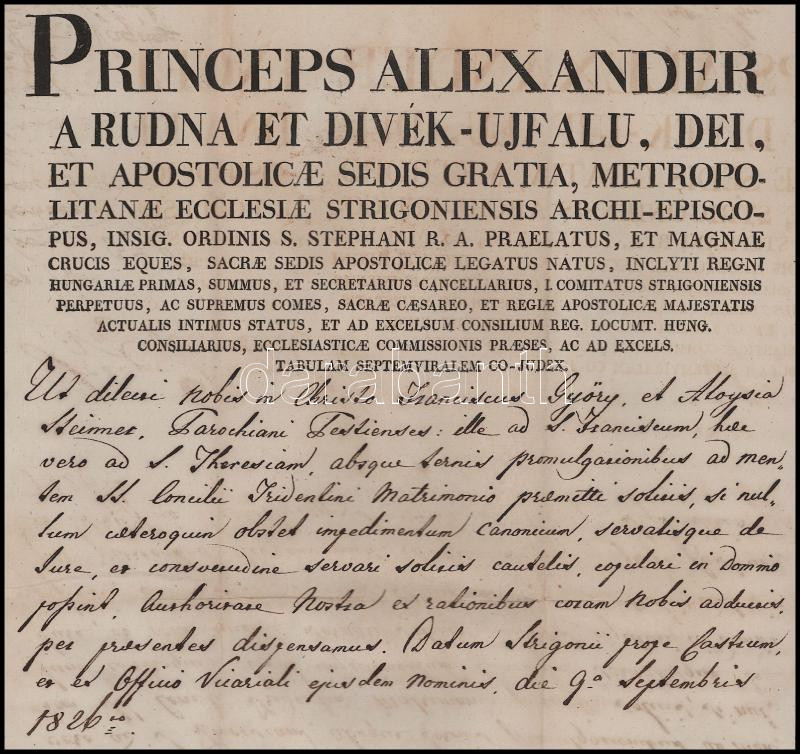 PRINCEPS ALEXANDER
A RUDNA ET DIVÉK-UJFALU, DEI,
ET APOSTOLICÆ SEDIS GRATIA, METROPO-
LITANÆ ECCLESIÆ STRIGONIENSIS ARCHI-EPISCO-
PUS, INSIG. ORDINIS S. STEPHANI R. A. PRAELATUS, ET MAGNAE
CRUCIS EQUES, SACRÆ SEDIS APOSTOLICÆ LEGATUS NATUS, INCLYTI REGNI
HUNGARIÆ PRIMAS, SUMMUS, ET SECRETARIUS CANCELLARIUS, I. COMITATUS STRIGONIENSIS
PERPETUUS, AC SUPREMUS COMES, SACRÆ CÆSAREO, ET REGIÆ APOSTOLICÆ MAJESTATIS
ACTUALIS INTIMUS STATUS, ET AD EXCELSUM CONSILIUM REG. LOCUMT. HUNG.
CONSILIARIUS, ECCLESIASTICÆ COMMISSIONIS PRÆSES, AC AD EXCELS.
TABULAM SEPTEMVIRALEM CO-JUDEX.
darabanth
Ut dilecti Nobis in Christo Franciscus Györy, et Aloysia
Steinner, Parochiani Pestienses: ille ad S. Franciscum, hæc
vero ad S. Theresiam, absque ternis promulgationibus ad men-
tem SS. Concilii Tridentini Matrimonio præmitti solitis, si nul-
lum cæteroquin obstet impedimentum Canonicum, servatisque de
Jure, et consvetudine servari solitis cautelis, copulari in Domino
possint, Authoritate Nostra ex rationibus coram Nobis adductis,
per præsentes dispensamus. Datum Strigonii prope Castrum,
et ex Officio Vicariali ejusdem Nominis, die 9a Septembris
1826to.